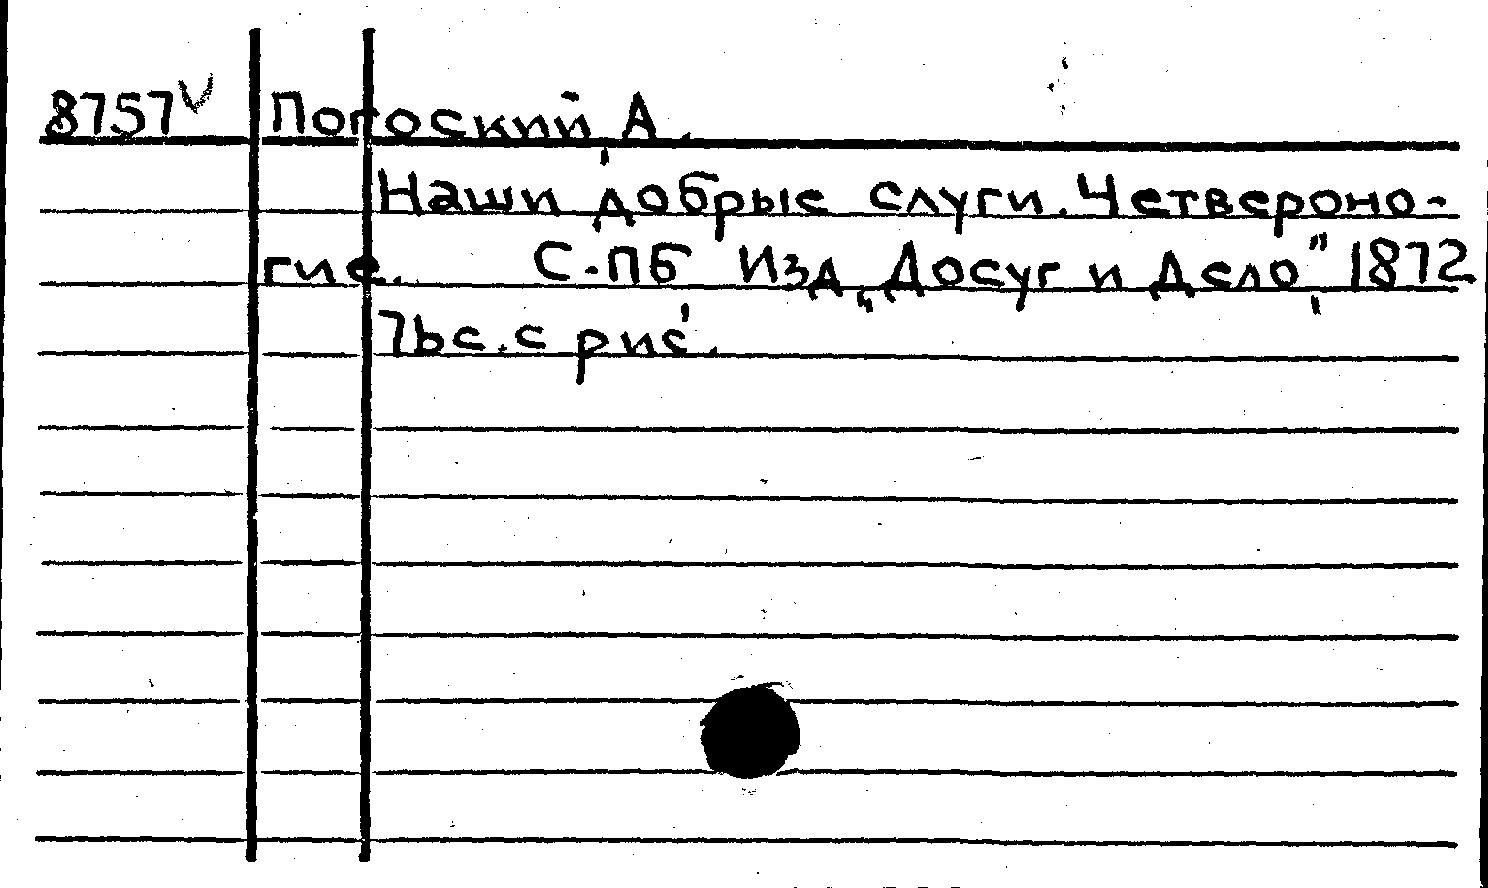 8757 V Погоский, А.
Наши добрые слуги. Четвероно-
гие. С-ПБ Изд „Досуг и Дело", 1872
76с. с рис.